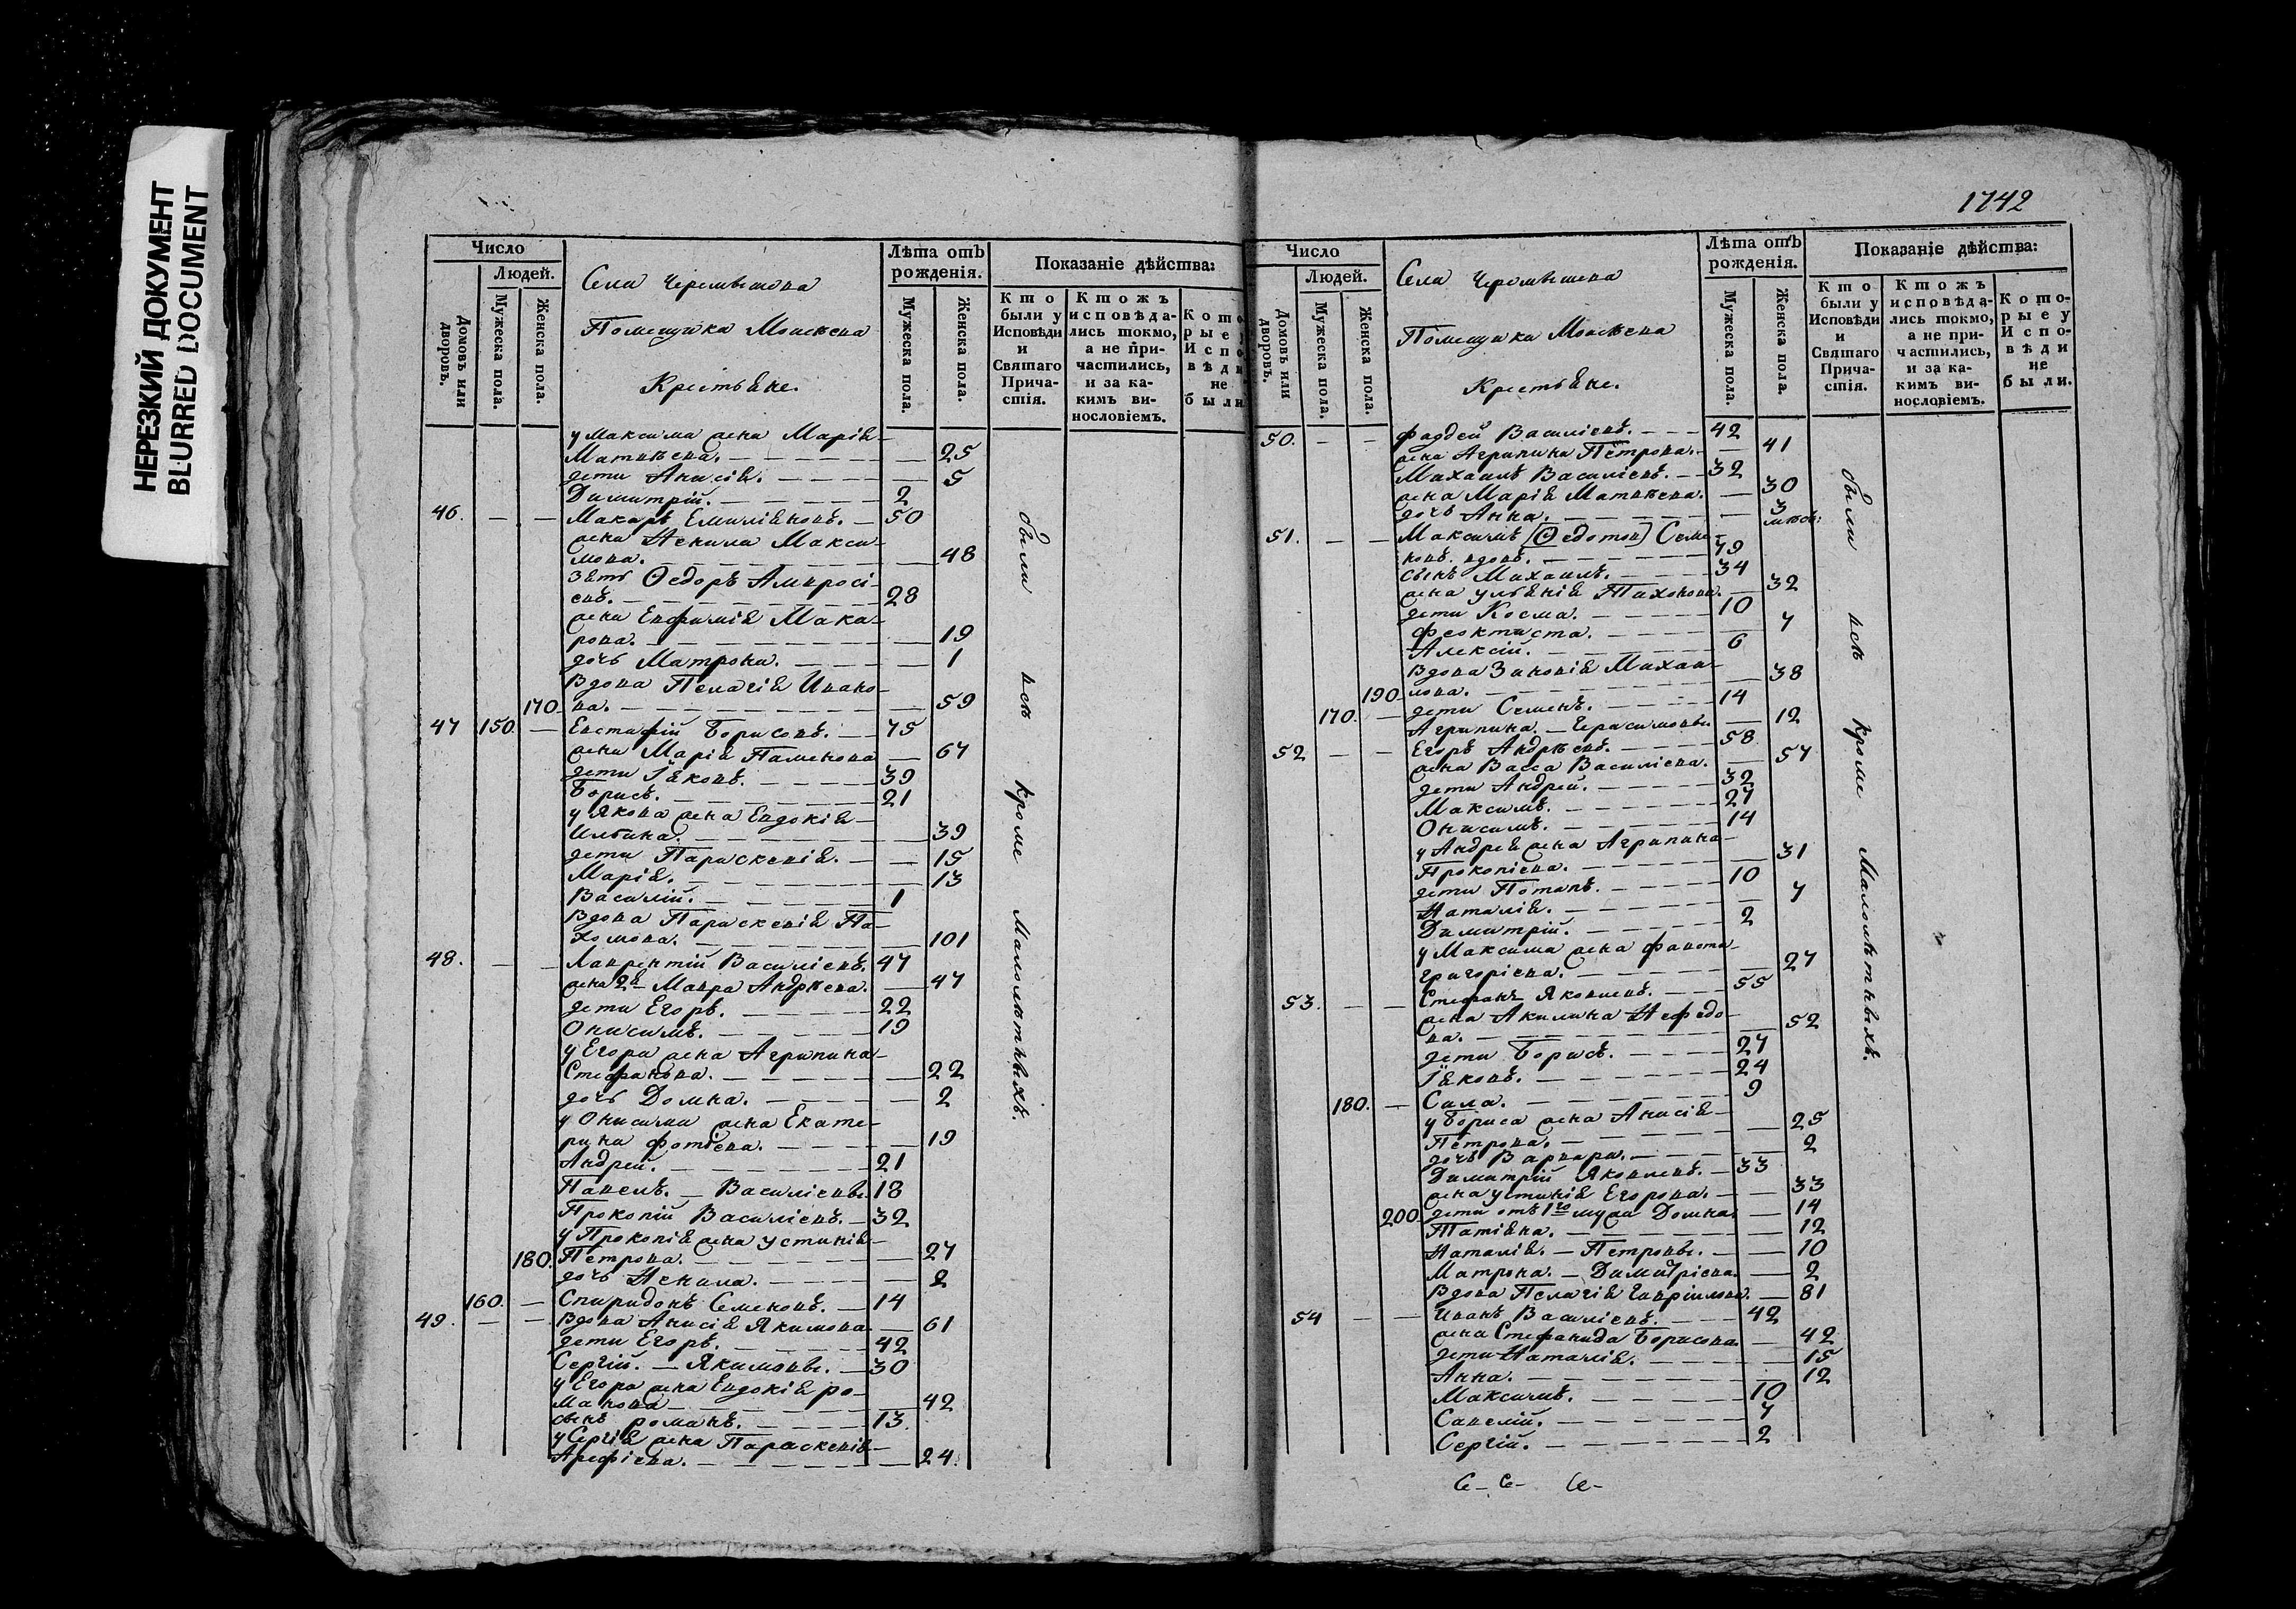 НЕРЕЗКИЙ ДОКУМЕНТ
BLURRED DOCUMENT
Число
Людей.
Домовъ или дворовъ.
Мужеска пола.
Женска пола.
Села
Помещика
Крестьяне.
Лѣта отъ рожденія.
Мужеска пола.
Женска пола.
Показаніе дѣйства:
Кто были у Исповѣди и Святаго Причастія.
Ктожъ исповѣдались токмо, а не причастились, и за какимъ винословіемъ.
Которые у Исповѣди не были
у Максима жена Марія
Матвѣева. — 25
дети Анисія. — 5
Димитрій. — 2
46. — — Макаръ Емиліановъ. — 50
жена Ненила Макси-
мова. — 48
зять Ѳедоръ Амвросі-
евъ. — 28
жена Евфимія Мака-
рова. — 19
дочь Матрона. — 1
Вдова Пелагія Ивано-
170. ва. — 59
47 150. — Евстафій Борисовъ. — 75
жена Марія Паменова — 67
дети Іяковъ. — 39
Борисъ. — 21
у Якова жена Евдокія
Ильина. — 39
дети Параскевія. — 15
Марія. — 13
Василій. — 1
Вдова Параскевія Па-
хомова. — 101
48. — — Лаврентій Василіевъ. 47
жена 2я Мавра Андрѣева. — 47
дети Егоръ. — 22
Онисимъ. — 19
у Егора жена Агрипина
Стефанова. — 22
дочь Домна. — 2
у Онисима жена Екате-
рина Фотіева. — 19
Андрей. — 21
Павелъ. — Василіевы 18
Прокопій Василіевъ. — 32
у Прокопія жена Устинія
180. Петрова. — 27
дочь Ненила. — 2
160. — Спиридонъ Семеновъ. — 14
49. — — Вдова Анисія Якимова — 61
дети Егоръ. — 42
Сергій. — Якимовы. — 30
у Егора жена Евдокія Ро-
манова — 42
сынъ Романъ. — 13.
у Сергія жена Параскевія
Арефіева. — 24.
были всѣ кроме Малолѣтныхъ.
1742
Число
Людей.
Домовъ или дворовъ.
Мужеска пола.
Женска пола.
Села
Помещика
Крестьяне.
Лѣта отъ рожденія.
Мужеска пола.
Женска пола.
Показаніе дѣйства:
Кто были у Исповѣди и Святаго Причастія.
Ктожъ исповѣдались токмо, а не причастились, и за какимъ винословіемъ.
Которые у Исповѣди не были.
50. — — Фаддей Василіевъ. — 42
жена Агрипина Петрова. — 41
Михаилъ Василіевъ. — 32
жена Марія Матвѣева. — 30
дочь Анна. — 3
51. — — Максимъ [Ѳедотов] Семе-
новъ вдовъ. — 79
сынъ Михаилъ. — 34
жена Ульянія — 32
дети Косма. — 10
Феоктиста. — 7
Алексій. — 6
Вдова Зиновія Михаи-
190. лова. — 38
170. — дети Семенъ. — 14
Агрипина. — Герасимовы — 12
52 — — Егоръ Андрѣевъ. — 58
жена Васса Василіева. — 57
дети Андрей. — 32
Максимъ. — 27
Онисимъ. — 14
у Андрея жена Агрипина
Прокопіева. — 31
дети Потапъ. — 10
Наталія. — 7
Димитрій. — 2
у Максима жена
Григоріева. — 27
53. — — Стефанъ Яковлевъ. — 55
жена Акилина Нефедо-
ва. — 52
дети Борисъ. — 27
Іяковъ. — 24
180. — Сила. — 9
у Бориса жена Анисія
Петрова. — 25
дочь Варвара. — 2
Димитрій Яковлевъ. — 33
жена Устинія Егорова. — 33
200. дети отъ 1го мужа Домна. — 14
Татіяна. — 12
Наталія. — Петровы. — 10
Матрона. — Димитріева. — 2
Вдова Пелагія Гавріилова. — 81
54 — — Иванъ Василіевъ. — 42
жена Стефанида Борисова — 42
дети Наталія. — 15
Анна. — 12
Максимъ. — 10
Савелій. — 7
Сергій. — 2
были всѣ кроме Малолѣтныхъ.